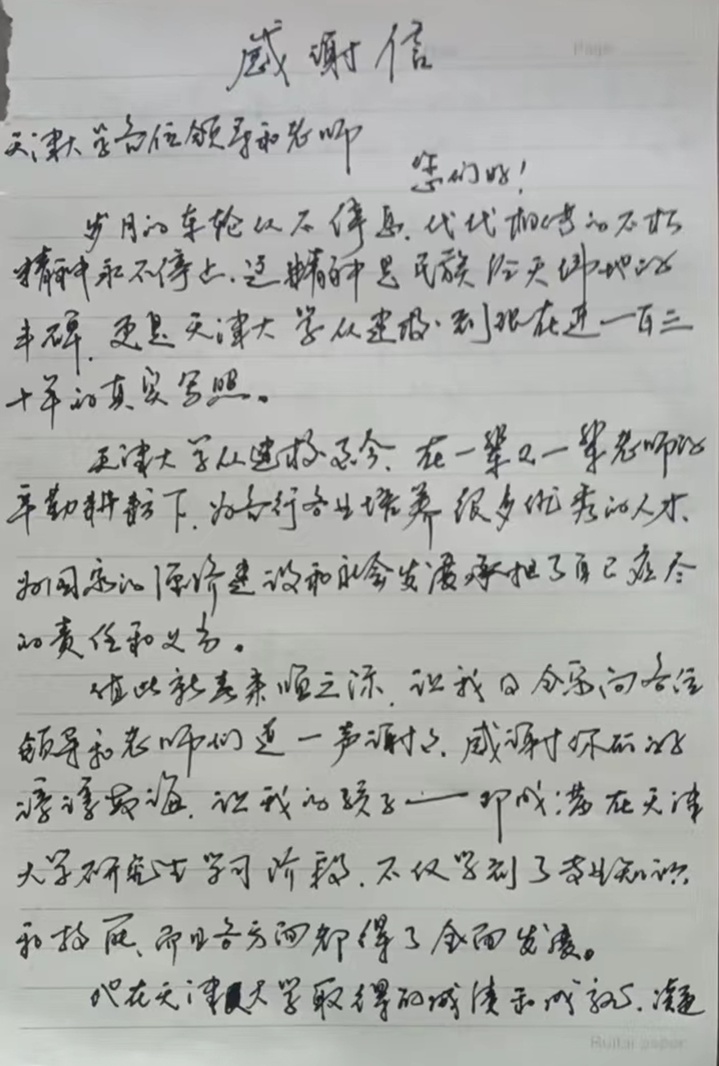 感谢信
天津大学各位领导和老师
您们好!
岁月的车轮从不停息,代代相传的不朽
精神永不停止,这精神是民族顶天立地的
丰碑,更是天津大学从建校到现在近一百三
十年的真实写照。
天津大学从建校至今,在一辈又一辈老师的
辛勤耕耘下,为各行各业培养很多优秀的人才,
为国家的经济建设和社会发展承担了自己应尽
的责任和义务。
值此新春来临之际,让我与全家向各位
领导和老师们道一声谢谢,感谢你们的
谆谆教诲,让我的孩子——成满在天津
大学研究生学习阶段,不仅学到了专业知识
和技能,而且各方面都得了全面发展。
他在天津大学取得的成绩和成就,凝
Ruitai paper
Page